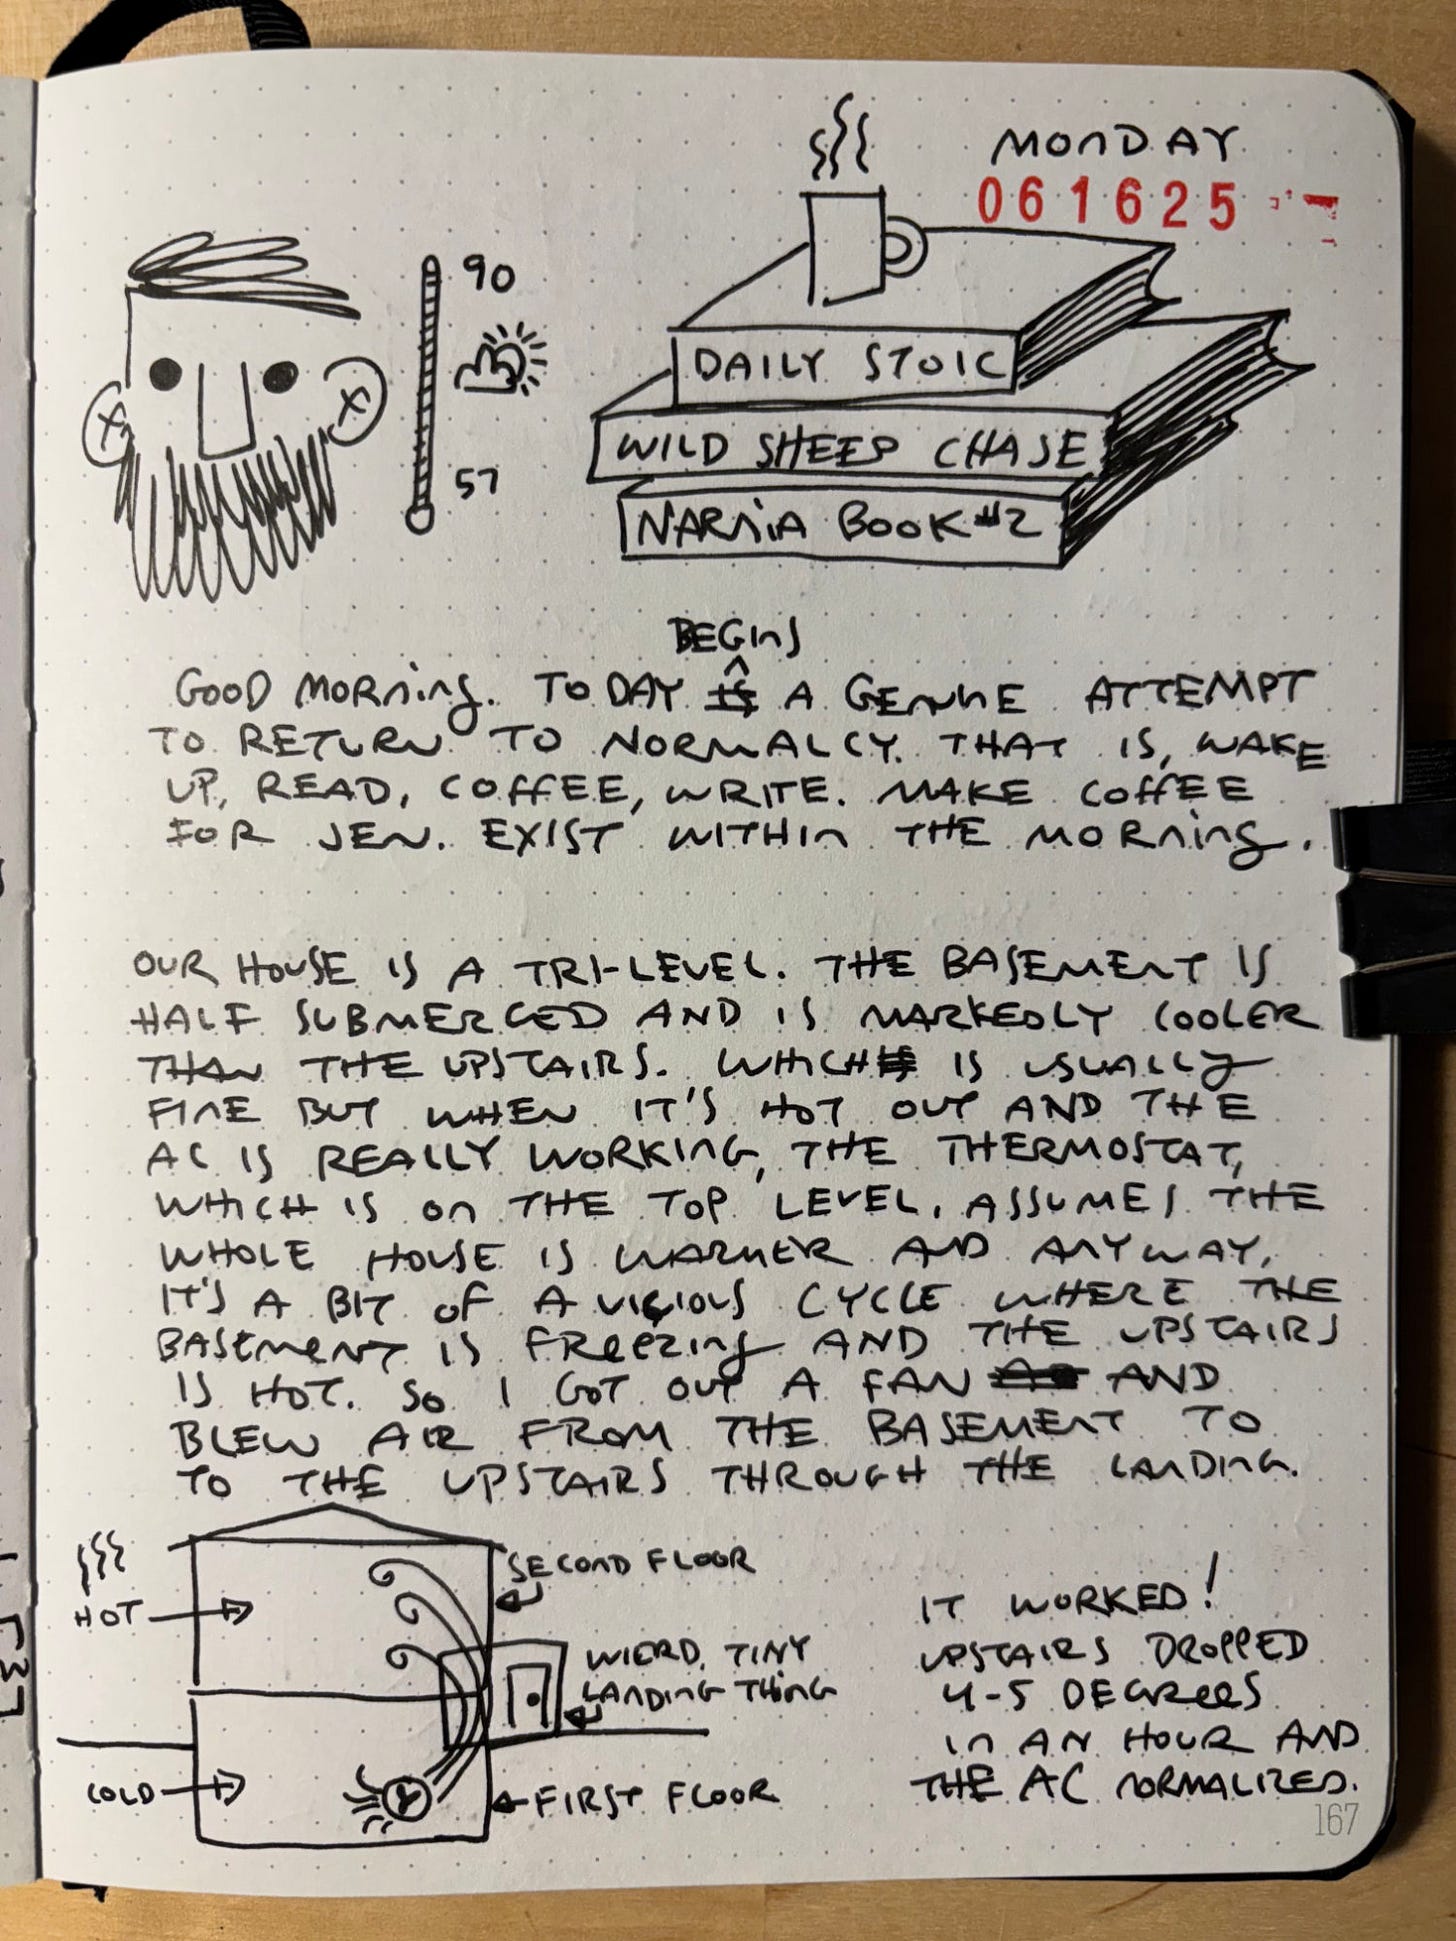 MONDAY
061625
90
57
DAILY STOIC
WILD SHEEP CHASE
NARNIA BOOK #2
BEGINS
GOOD MORNING. TODAY IS A GENUINE ATTEMPT
TO RETURN TO NORMALCY. THAT IS, WAKE
UP, READ, COFFEE, WRITE. MAKE COFFEE
FOR JEN. EXIST WITHIN THE MORNING.
OUR HOUSE IS A TRI-LEVEL. THE BASEMENT IS
HALF SUBMERGED AND IS MARKEDLY COOLER
THAN THE UPSTAIRS. WHICH IS USUALLY
FINE BUT WHEN IT'S HOT OUT AND THE
AC IS REALLY WORKING, THE THERMOSTAT,
WHICH IS ON THE TOP LEVEL, ASSUMES THE
WHOLE HOUSE IS WARMER AND ANYWAY,
IT'S A BIT OF A VICIOUS CYCLE WHERE THE
BASEMENT IS FREEZING AND THE UPSTAIRS
IS HOT. SO I GOT OUT A FAN AND
BLEW AIR FROM THE BASEMENT TO
TO THE UPSTAIRS THROUGH THE LANDING.
HOT
SECOND FLOOR
WIERD, TINY
LANDING THING
COLD
FIRST FLOOR
IT WORKED!
UPSTAIRS DROPPED
4-5 DEGREES
IN AN HOUR AND
THE AC NORMALIZED.
167